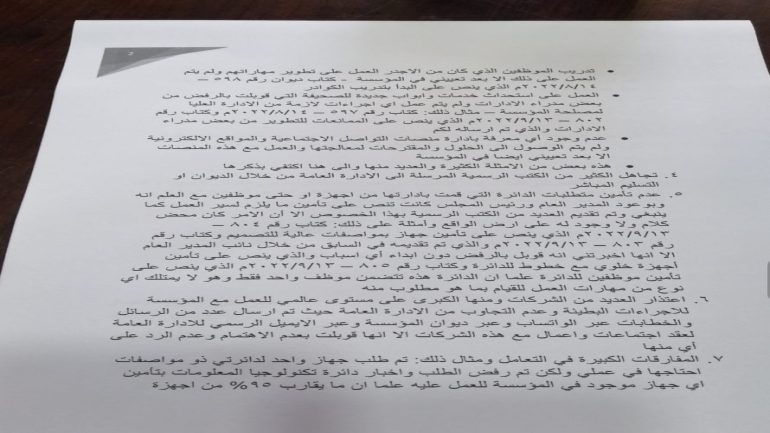 2
• تدريب الموظفين الذي كان من الاجدر العمل على تطوير مهاراتهم ولم يتم
العمل على ذلك الا بعد تعييني في المؤسسة - كتاب ديوان رقم ٥٩٨ –
٢٠٢٢/٨/١٤م الذي ينص على البدأ بتدريب الكوادر
• العمل على استحداث خدمات وابواب جديدة للصحيفة التي قوبلت بالرفض من
بعض مدراء الادارات ولم يتم عمل اي اجراءات لازمة من الادارة العليا
لمصلحة المؤسسة – مثال ذلك: كتاب رقم ٥٩٧ – ٢٠٢٢/٨/١٤م وكتاب رقم
٨٠٢ – ٢٠٢٢/٩/١٣م الذي ينص على الممانعات للتطوير من بعض مدراء
الادارات والذي تم ارساله لكم
• عدم وجود أي معرفة بادارة منصات التواصل الاجتماعية والمواقع الالكترونية
ولم يتم الوصول الى الحلول والمقترحات لمعالجتها والعمل مع هذه المنصات
الا بعد تعييني ايضا في المؤسسة
• هذه بعض من الامثلة الكثيرة والعديد منها والى هنا اكتفي بذكرها
٤. تجاهل الكثير من الكتب الرسمية المرسلة الى الادارة العامة من خلال الديوان أو
التسليم المباشر
٥. عدم تأمين متطلبات الدائرة التي قمت بادارتها من اجهزة او حتى موظفين مع العلم انه
وبوعود المدير العام ورئيس المجلس كانت تنص على تأمين ما يلزم لسير العمل كما
ينبغي وتم تقديم العديد من الكتب الرسمية بهذا الخصوص الا أن الامر كان محض
كلام ولا وجود له على ارض الواقع وأمثلة على ذلك: كتاب رقم ٨٠٤ –
٢٠٢٢/٩/١٣م الذي ينص على تأمين جهاز بمواصفات عالية للتصميم وكتاب رقم
رقم ٨٠٣ – ٢٠٢٢/٩/١٣م والذي تم تقديمه في السابق من خلال نائب المدير العام
الا انها اخبرتني انه قوبل بالرفض دون ابداء أي اسباب والذي ينص على تأمين
أجهزة خلوي مع خطوط للدائرة وكتاب رقم ٨٠٥ – ٢٠٢٢/٩/١٣م الذي ينص على
تأمين موظفين للدائرة علما ان الدائرة هذه تتضمن موظف واحد فقط وهو لا يمتلك اي
نوع من مهارات العمل للقيام بما هو مطلوب منه
٦. اعتذار العديد من الشركات ومنها الكبرى على مستوى عالمي للعمل مع المؤسسة
للاجراءات البطيئة وعدم التجاوب من الادارة العامة حيث تم ارسال عدد من الرسائل
والخطابات عبر الواتساب وعبر ديوان المؤسسة وعبر الايميل الرسمي للادارة العامة
لعقد اجتماعات واعمال مع هذه الشركات الا انها قوبلت بعدم الاهتمام وعدم الرد على
أي منها
٧. المفارقات الكبيرة في التعامل ومثال ذلك: تم طلب جهاز واحد لدائرتي ذو مواصفات
احتاجها في عملي ولكن تم رفض الطلب واخبار دائرة تكنولوجيا المعلومات بتأمين
اي جهاز موجود في المؤسسة للعمل عليه علما ان ما يقارب ٩٥% من اجهزة